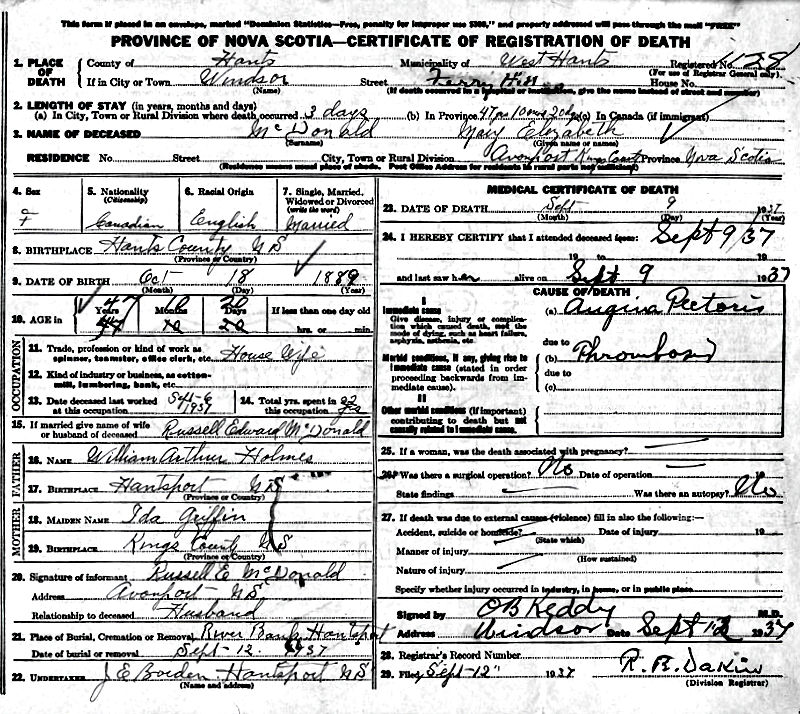 This form if placed in an envelope, marked "Dominion Statistics—Free, penalty for improper use $300," and properly addressed will pass through the mail "FREE"
PROVINCE OF NOVA SCOTIA—CERTIFICATE OF REGISTRATION OF DEATH
1. PLACE OF DEATH County of Hants Municipality of West Hants Registered No. 1128
(For use of Registrar General only).
If in City or Town Windsor Street Ferry Hill House No.
(Name) (If death occurred in a hospital or institution, give the name instead of street and number)
2. LENGTH OF STAY (in years, months and days)
(a) In City, Town or Rural Division where death occurred 3 days (b) In Province 47 yrs 10 mos 20 dys (c) In Canada (if immigrant)
3. NAME OF DECEASED McDonald Mary Elizabeth
(Surname) (Given name or names)
RESIDENCE No. Street City, Town or Rural Division Avonport Kings County Province Nova Scotia
(Residence means usual place of abode. Post Office Address for residents in rural parts not sufficient)
4. Sex 5. Nationality (Citizenship) 6. Racial Origin 7. Single, Married, Widowed or Divorced (write the word)
F Canadian English Married
8. BIRTHPLACE Hants County N S
(Province or Country)
9. DATE OF BIRTH Oct 18 1889
(Month) (Day) (Year)
10. AGE in 47 Years 10 Months 20 Days If less than one day old
10 20 hrs. or min.
OCCUPATION
11. Trade, profession or kind of work as spinner, teamster, office clerk, etc. House Wife
12. Kind of industry or business, as cotton-mill, lumbering, bank, etc.
13. Date deceased last worked at this occupation Sept-6 1937 14. Total yrs. spent in this occupation 22 yrs
15. If married give name of wife or husband of deceased Russell Edward McDonald
FATHER
16. NAME William Arthur Holmes
17. BIRTHPLACE Hantsport N S
(Province or Country)
MOTHER
18. MAIDEN NAME Ida Griffin
19. BIRTHPLACE Kings County N S
(Province or Country)
20. Signature of informant Russell E McDonald
Address Avonport N.S.
Relationship to deceased Husband
21. Place of Burial, Cremation or Removal River Bank Hantsport
Date of burial or removal Sept-12. 1937
22. UNDERTAKER J E Borden Hantsport N S
(Name and address)
MEDICAL CERTIFICATE OF DEATH
23. DATE OF DEATH Sept 9 1937
(Month) (Day) (Year)
24. I HEREBY CERTIFY that I attended deceased from: Sept 9/37
19 to 19
and last saw her alive on Sept 9 1937
CAUSE OF DEATH
I
Immediate cause (a) Angina Pectoris
Give disease, injury or complication which caused death, not the mode of dying, such as heart failure, asphyxia, asthenia, etc.
due to
Morbid conditions, if any, giving rise to immediate cause (stated in order proceeding backwards from immediate cause). (b) Thrombosis
due to
(c)
II
Other morbid conditions (if important) contributing to death but not causally related to immediate cause.
25. If a woman, was the death associated with pregnancy?
26. Was there a surgical operation? No Date of operation 19
State findings Was there an autopsy? No
27. If death was due to external causes (violence) fill in also the following:—
Accident, suicide or homicide? Date of injury 19
(State which)
Manner of injury
(How sustained)
Nature of injury
Specify whether injury occurred in industry, in home, or in public place
Signed by O B Keddy M.D.
Address Windsor Date Sept 12 1937
28. Registrar's Record Number
29. Filed Sept-12" 1937 R. B. Dakin
(Division Registrar)